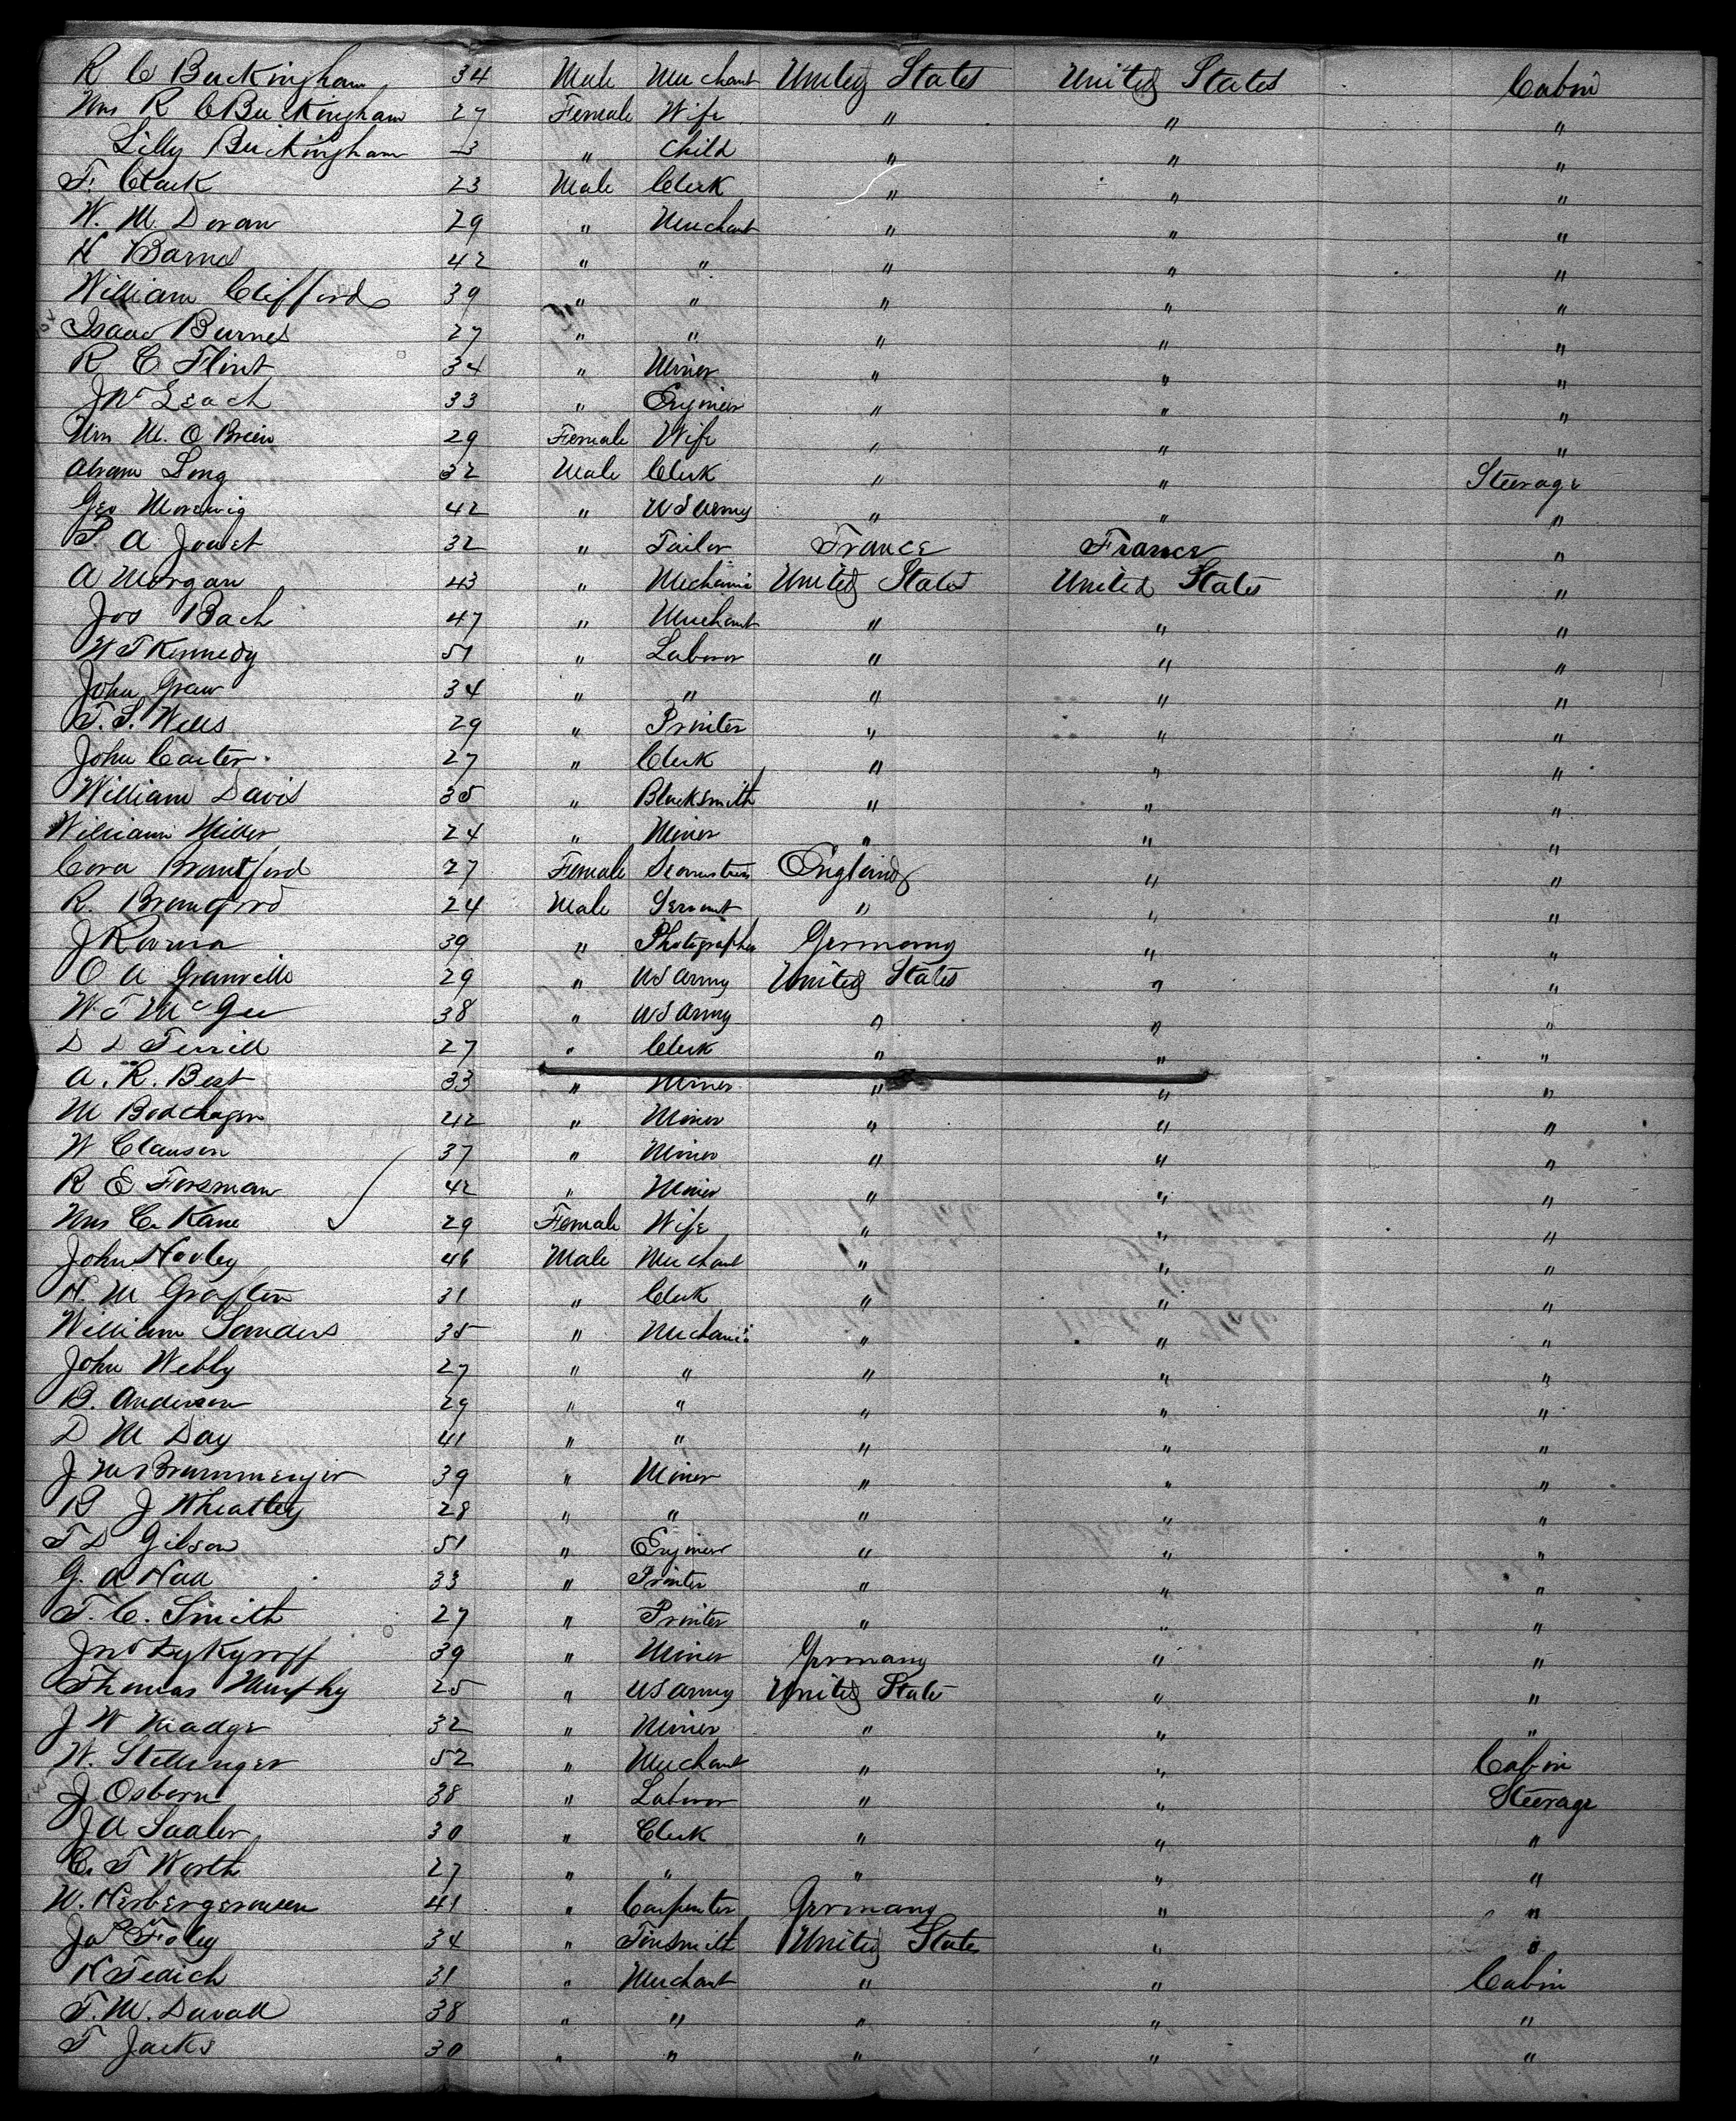 R C Buckingham 34 Male Merchant United States United States Cabin
Mrs R C Buckingham 27 Female Wife " " "
Lilly Buckingham 3 " Child " " "
F. Clark 23 Male Clerk " " "
W. M. Doran 29 " Merchant " " "
H Barnes 42 " " " " "
William Clifford 39 " " " " "
Isaac Burnes 27 " " " " "
R C Flint 34 " Miner " " "
Jno Leach 33 " Engineer " " "
Mrs M. O Brien 29 Female Wife " " "
Abram Long 32 Male Clerk " " Steerage
Geo 42 " U S Army " " "
P A Jouet 32 " Tailor France France "
A Morgan 43 " Mechanic United States United States "
Jos Bach 47 " Merchant " " "
W T Kennedy 51 " Laborer " " "
John Graw 34 " " " " "
T. S. Wells 29 " Printer " " "
John Carter 27 " Clerk " " "
William Davis 35 " Blacksmith " " "
William Miller 24 " Miner " " "
Cora Brantford 27 Female Seamstress England " "
R. 24 Male Servant " " "
J 39 " Photographer Germany " "
O A Granville 29 " U S Army United States " "
W. T McGee 38 " U S Army " " "
D D Terrill 27 " Clerk " " "
A. R. Best 33 " Miner " " "
M 42 " Miner " " "
W Clausen 37 " Miner " " "
R E Forsman 42 " Miner " " "
Mrs C. Kane 29 Female Wife " " "
John Nooley 46 Male Merchant " " "
H. M Grafton 31 " Clerk " " "
William Sanders 35 " Mechanic " " "
John Webly 27 " " " " "
B. Anderson 29 " " " " "
D M Day 41 " " " " "
J M Brammeijer 39 " Miner " " "
B J Wheatley 28 " " " " "
T D Gilson 51 " Engineer " " "
G. A Hall 33 " Printer " " "
T. C. Smith 27 " Printer " " "
Jno 39 " Miner Germany " "
Thomas Murphy 25 " U S Army United States " "
J W 32 " Miner " " "
W. Stellinger 52 " Merchant " " Cabin
J Osborn 38 " Laborer " " Steerage
J A Saaler 30 " Clerk " " "
C. T Worth 27 " " " " "
W. 41 " Carpenter Germany " "
Jas Foley 34 " Tinsmith United States " "
H Tedich 31 " Merchant " " Cabin
T. M. Duvall 38 " " " " "
T Jacks 30 " " " " "